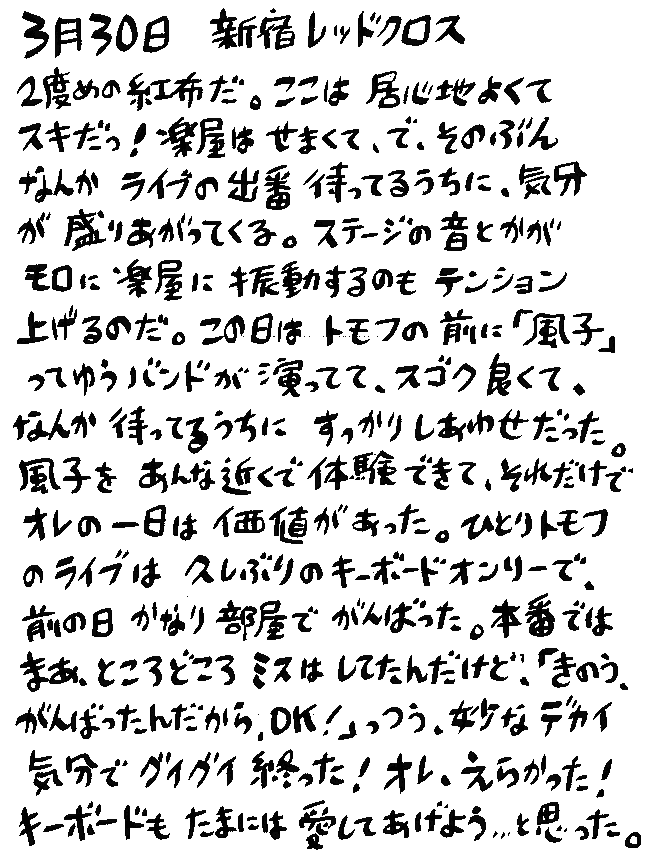 3月30日 新宿レッドクロス
2度めの紅布だ。ここは 居心地よくて
スキだっ!楽屋は せまくて、で、そのぶん
なんか ライブの出番 待ってるうちに、気分
が 盛りあがってくる。ステージの音とかが
モロに 楽屋に 振動するのも テンション
上げるのだ。この日は トモフの 前に「風子」
ってゆうバンドが 演ってて、スゴク 良くて、
なんか 待ってるうちに すっかり しあわせだった。
風子を あんな近くで 体験できて、それだけで
オレの 一日は 価値があった。ひとりトモフ
のライブは 久しぶりのキーボードオンリーで、
前の日 かなり 部屋で がんばった。本番では
まぁ、ところどころ ミスは してたんだけど、「きのう、
がんばったんだから、OK!」っつう、妙な デカイ
気分で グイグイ 終った!オレ、えらかった!
キーボードも たまには 愛してあげよう…と思った。